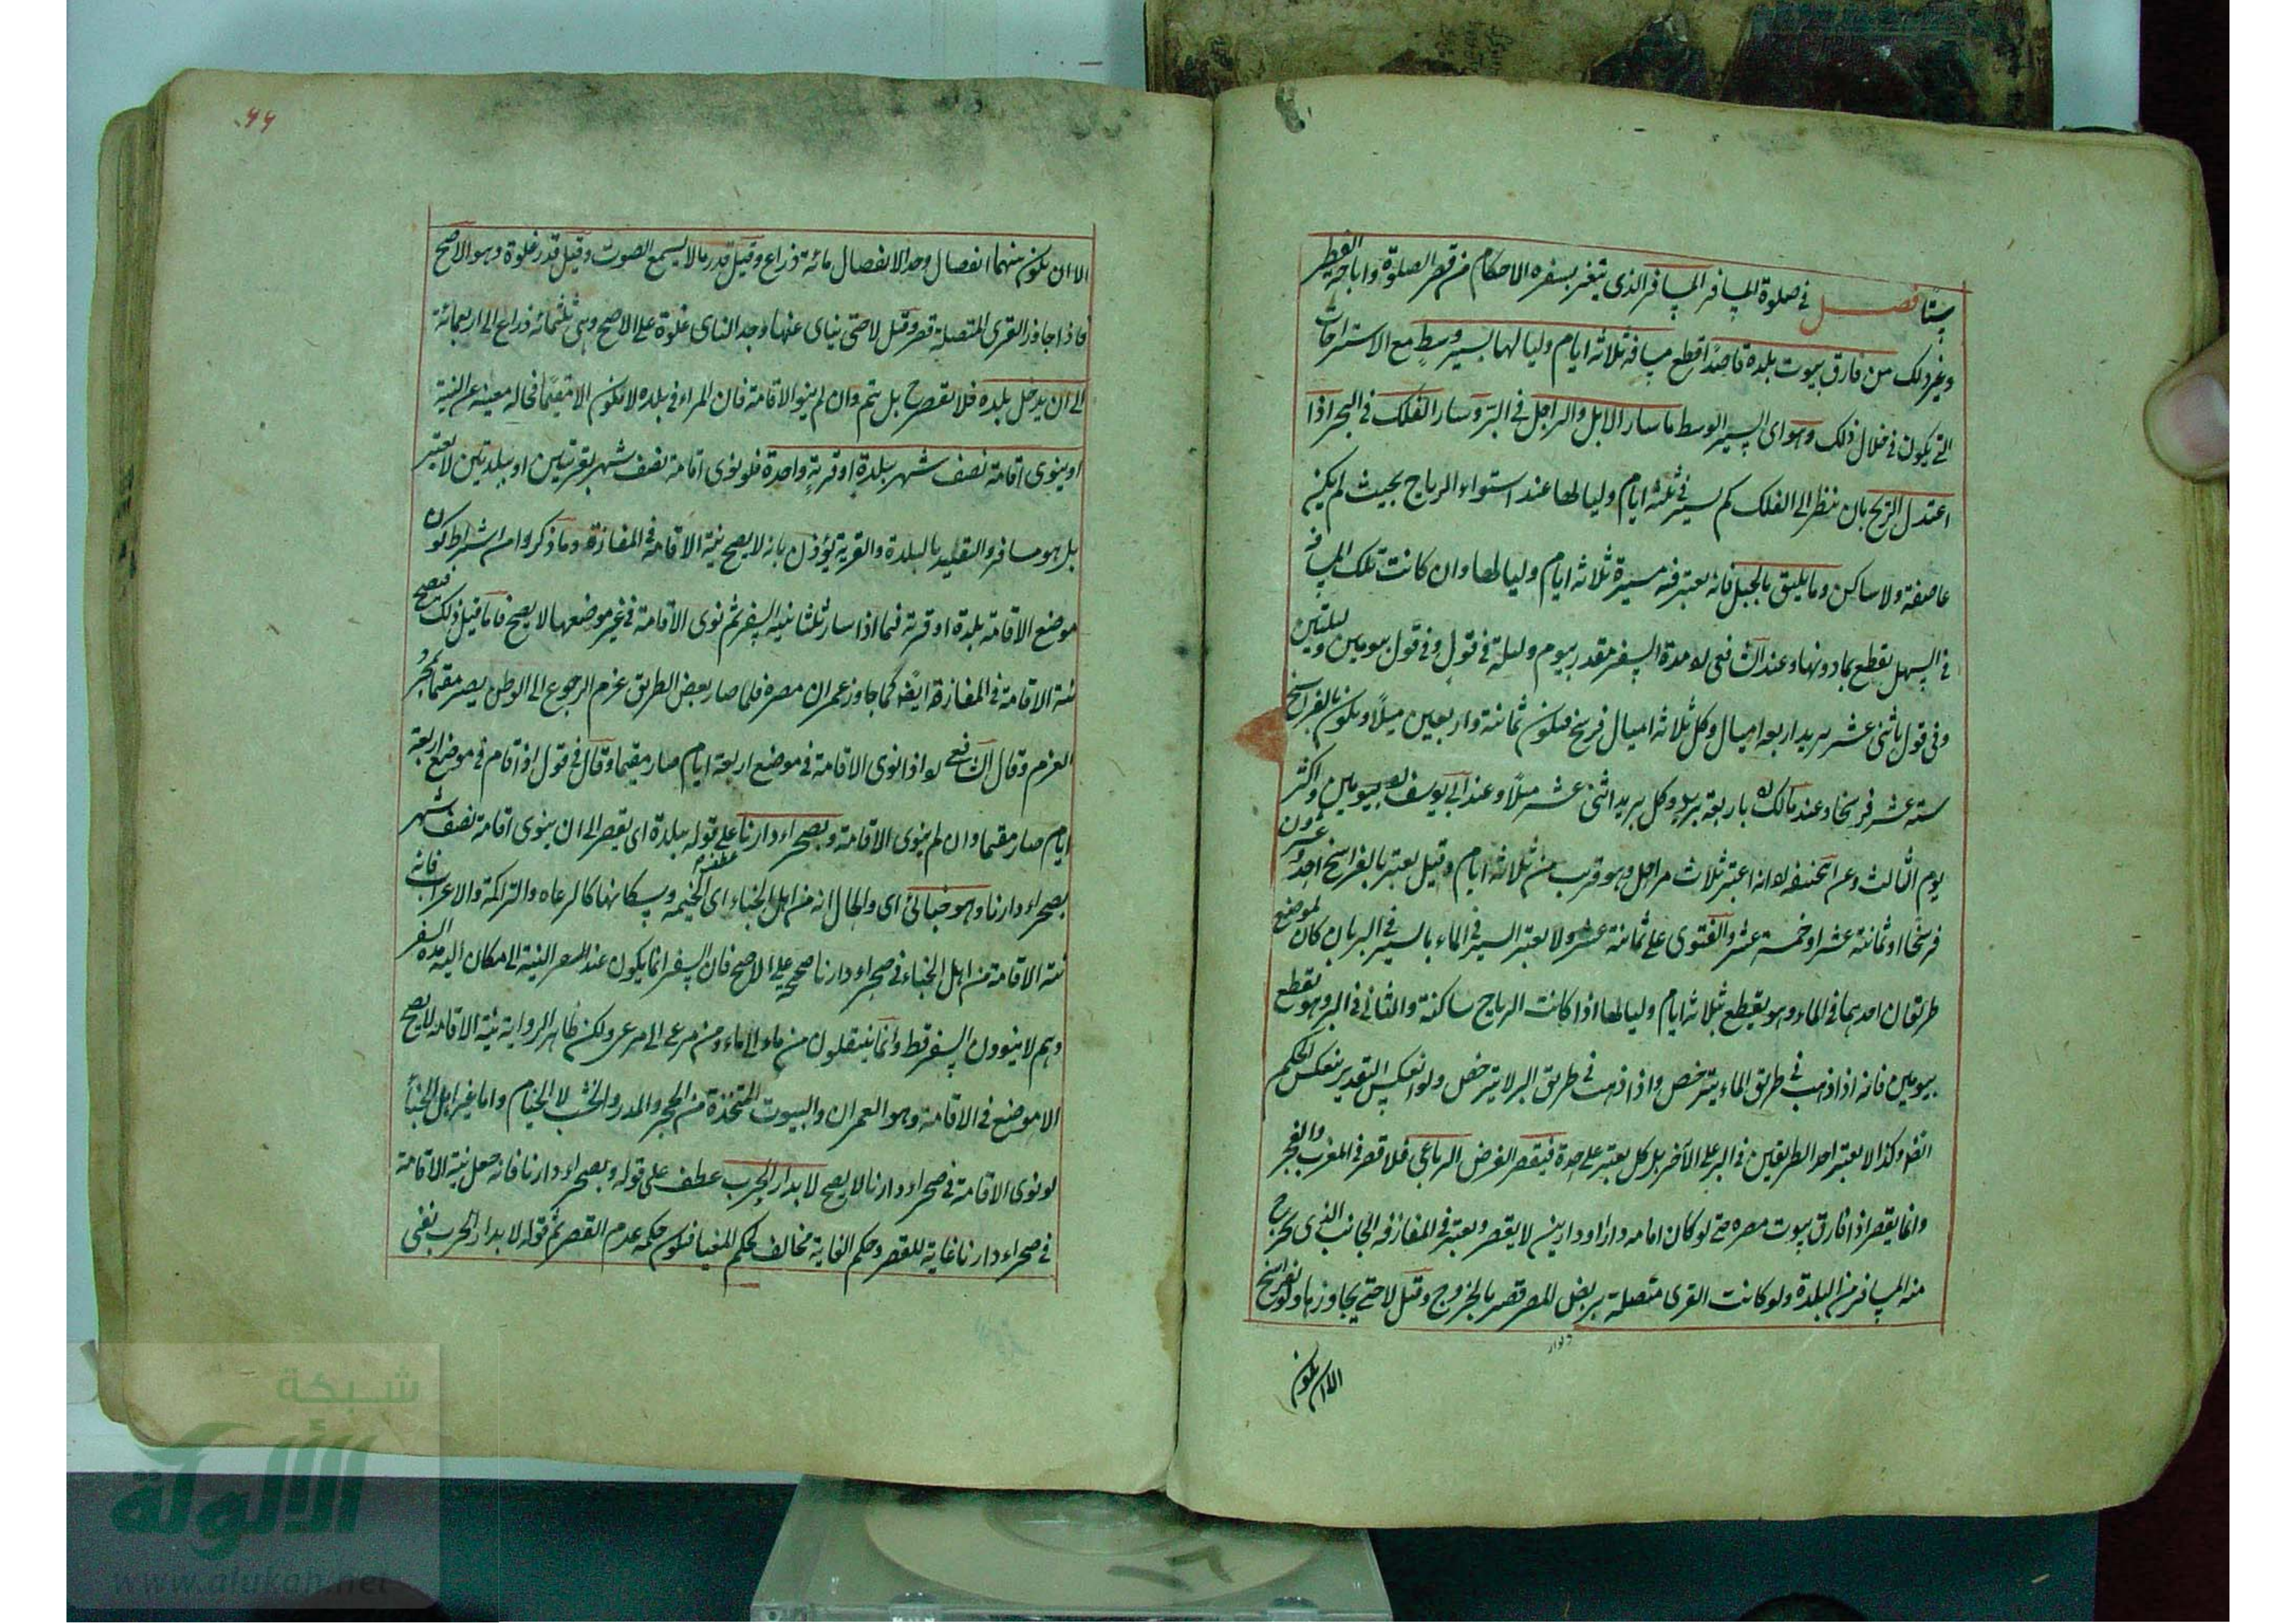 ستا فصل في صلوة المسافر المسافر الذي يتغير بسفره الاحكام من قصر الصلوة واباحة الفطر
وغير ذلك من فارق بيوت بلدة قاصدا قطع مسافة ثلاثة ايام ولياليها بسير وسط مع الاستراحات
التي يكون في خلال ذلك وهو اي السير الوسط ما سار الابل والراجل في البر وسار الفلك في البحر اذا
اعتدل الريح بان ينظر الى الفلك كم يسير في ثلثة ايام ولياليها عند استواء الرياح بحيث لم يكن
عاصفة ولا ساكن وما يليق بالجبل فانه يعتبر فيه مسيرة ثلاثة ايام ولياليها وان كانت تلك المسافة
في السهل يقطع بما دونها وعند الشافعي له مدة السفر مقدر بيوم وليلة في قول وفي قول بيومين وليلتين
وفي قول باثني عشر بريد اربعة اميال وكل ثلاثة اميال فرسخ فيكون ثمانية واربعين ميلا ويكون بالفراسخ
ستة عشر فرسخا وعند مالك له باربعة برد وكل بريد اثني عشر ميلا وعند ابي يوسف له بيومين واكثر
يوم الثالث وعن ابي حنيفة له انه اعتبر ثلاث مراحل وهو قريب من ثلاثة ايام وقيل يعتبر بالفراسخ احد وعشرون
فرسخا او ثمانية عشر او خمسة عشر والفتوى على ثمانية عشر ولا يعتبر السير في الماء بالسير في البر بان كان لموضع
طريقان احدهما في الماء وهو يقطع بثلاثة ايام ولياليها اذا كانت الرياح ساكنة والثاني في البر وهو يقطع
بيومين فانه اذا ذهب في طريق الماء يترخص واذا ذهب في طريق البر لا يترخص ولو انعكس التقدير ينعكس الحكم
ايضا وكذا لا يعتبر احد الطريقين في البر على الآخر بل كل يعتبر على حدة فيقصر الفرض الرباعي فلا قصر في المغرب والفجر
وانما يقصر اذا فارق بيوت مصره حتى لو كان امامه دار او دارين لا يقصر ويعتبر في المفازة الجانب الذي يخرج
منه المسافر من البلدة ولو كانت القرى متصلة بربض المصر قصر بالخروج وقيل لا حتى يجاوزها ولو بفراسخ
الا ان يكون
۶۶
الا ان يكون بينهما انفصال وحد الانفصال مائة ذراع وقيل قدر ما لا يسمع الصوت وقيل قدر غلوة وهو الاصح
فاذا جاوز القرى المتصلة قصر وقيل لا حتى ينأى عنها وحد النأى غلوة على الاصح وهي ثلثمائة ذراع الى اربعمائة
الى ان يدخل بلده فلا يقصر ح بل يتم وان لم ينو الاقامة فان المرء في بلده لا يكون الا مقيما فحاله مغنية عن النية
او ينوي اقامة نصف شهر ببلدة او قرية واحدة فلو نوى اقامة نصف شهر بقريتين او ببلدتين لا يعتبر
بل هو مسافر والتقييد بالبلدة والقرية يؤذن بانه لا يصح نية الاقامة في المفازة وما ذكروا من اشتراط كون
موضع الاقامة بلدة او قرية فيما اذا سار ثلثا بنية السفر ثم نوى الاقامة في غير موضعها لا يصح فاما قبل ذلك فتصح
نية الاقامة في المفازة ايضا كما جاوز عمران مصره فلما صار بعض الطريق عزم الرجوع الى الوطن يصير مقيما بمجرد
العزم وقال الشافعي له اذا نوى الاقامة في موضع اربعة ايام صار مقيما وقال في قول اذا قام في موضع اربعة
ايام صار مقيما وان لم ينوي الاقامة وبصحراء دارنا عطف على قوله ببلدة اي يقصر الى ان ينوي اقامة نصف شهر
بصحراء دارنا وهو خبائي اي والحال انه من اهل الخباء اي الخيمة وسكانها كالرعاه والتراكمة والاعراب فانه
نية الاقامة من اهل الخباء في صحراء دارنا صحيح على الاصح فان السفر انما يكون عند النية الى مكان اليه مدة السفر
وهم لا ينوون السفر قط وانما ينتقلون من ماء الى ماء ومن مرعى الى مرعى ولكن ظاهر الرواية نية الاقامة لا يصح
الا موضع في الاقامة وهو العمران والبيوت المتخذة من الحجر والمدر والخشب لا الخيام واما غير اهل الخباء
لو نوى الاقامة في صحراء دارنا لا يصح لا بدار الحرب عطف على قوله وبصحراء دارنا فانه جعل نية الاقامة
في صحراء دارنا غاية للقصر وحكم الغاية مخالف لحكم المغيا فيكون حكمه عدم القصر ثم قوله لا بدار الحرب نفى
شبكة
الألوكة
www.alukah.net